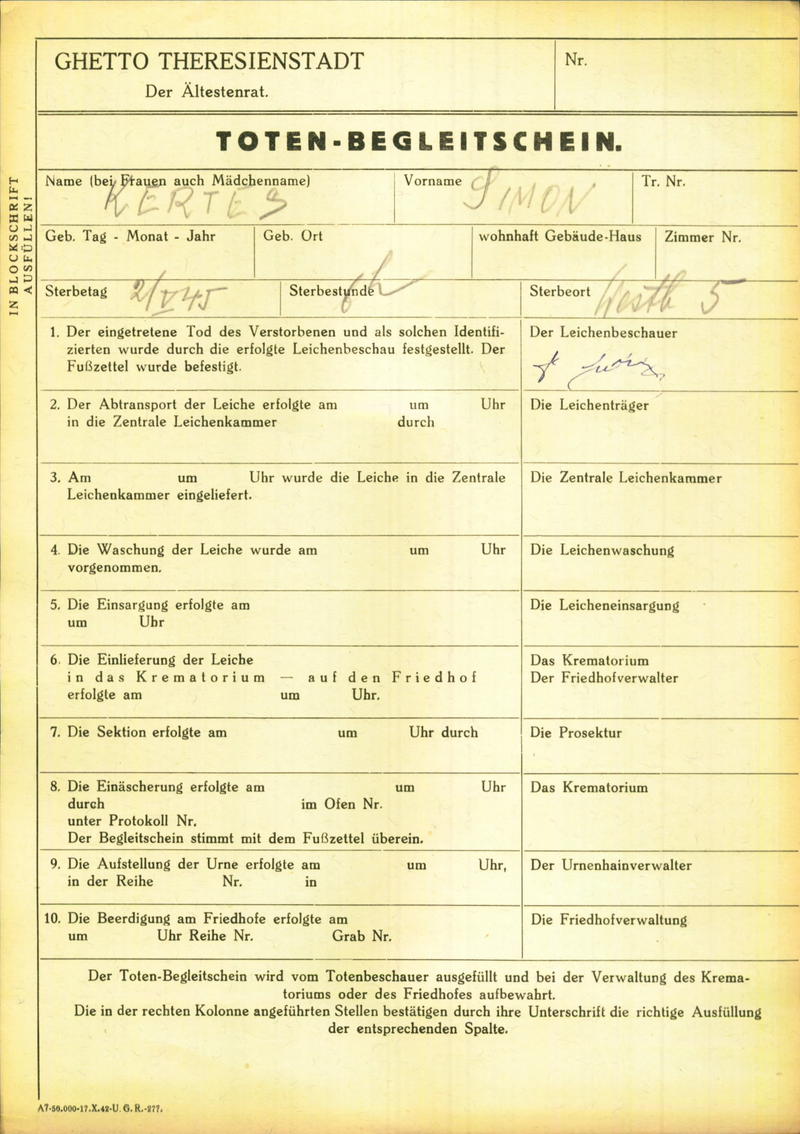 GHETTO THERESIENSTADT
Der Ältestenrat.
Nr.
TOTEN-BEGLEITSCHEIN.
IN BLOCKSCHRIFT
AUSFÜLLEN!
Name (bei Frauen auch Mädchenname)
KERTES
Vorname SIMON
Tr. Nr.
Geb. Tag - Monat - Jahr
Geb. Ort
wohnhaft Gebäude-Haus
Zimmer Nr.
Sterbetag 2/V 45
Sterbestunde 6h
Sterbeort Westb 5
1. Der eingetretene Tod des Verstorbenen und als solchen Identifi-
zierten wurde durch die erfolgte Leichenbeschau festgestellt. Der
Fußzettel wurde befestigt.
Der Leichenbeschauer
2. Der Abtransport der Leiche erfolgte am um Uhr
in die Zentrale Leichenkammer durch
Die Leichenträger
3. Am um Uhr wurde die Leiche in die Zentrale
Leichenkammer eingeliefert.
Die Zentrale Leichenkammer
4. Die Waschung der Leiche wurde am um Uhr
vorgenommen.
Die Leichenwaschung
5. Die Einsargung erfolgte am
um Uhr
Die Leicheneinsargung
6. Die Einlieferung der Leiche
in das Krematorium — auf den Friedhof
erfolgte am um Uhr.
Das Krematorium
Der Friedhofverwalter
7. Die Sektion erfolgte am um Uhr durch
Die Prosektur
8. Die Einäscherung erfolgte am um Uhr
durch im Ofen Nr.
unter Protokoll Nr.
Der Begleitschein stimmt mit dem Fußzettel überein.
Das Krematorium
9. Die Aufstellung der Urne erfolgte am um Uhr,
in der Reihe Nr. in
Der Urnenhainverwalter
10. Die Beerdigung am Friedhofe erfolgte am
um Uhr Reihe Nr. Grab Nr.
Die Friedhofverwaltung
Der Toten-Begleitschein wird vom Totenbeschauer ausgefüllt und bei der Verwaltung des Krema-
toriums oder des Friedhofes aufbewahrt.
Die in der rechten Kolonne angeführten Stellen bestätigen durch ihre Unterschrift die richtige Ausfüllung
der entsprechenden Spalte.
A7-50.000-17.X.42-U.G.R.-277.